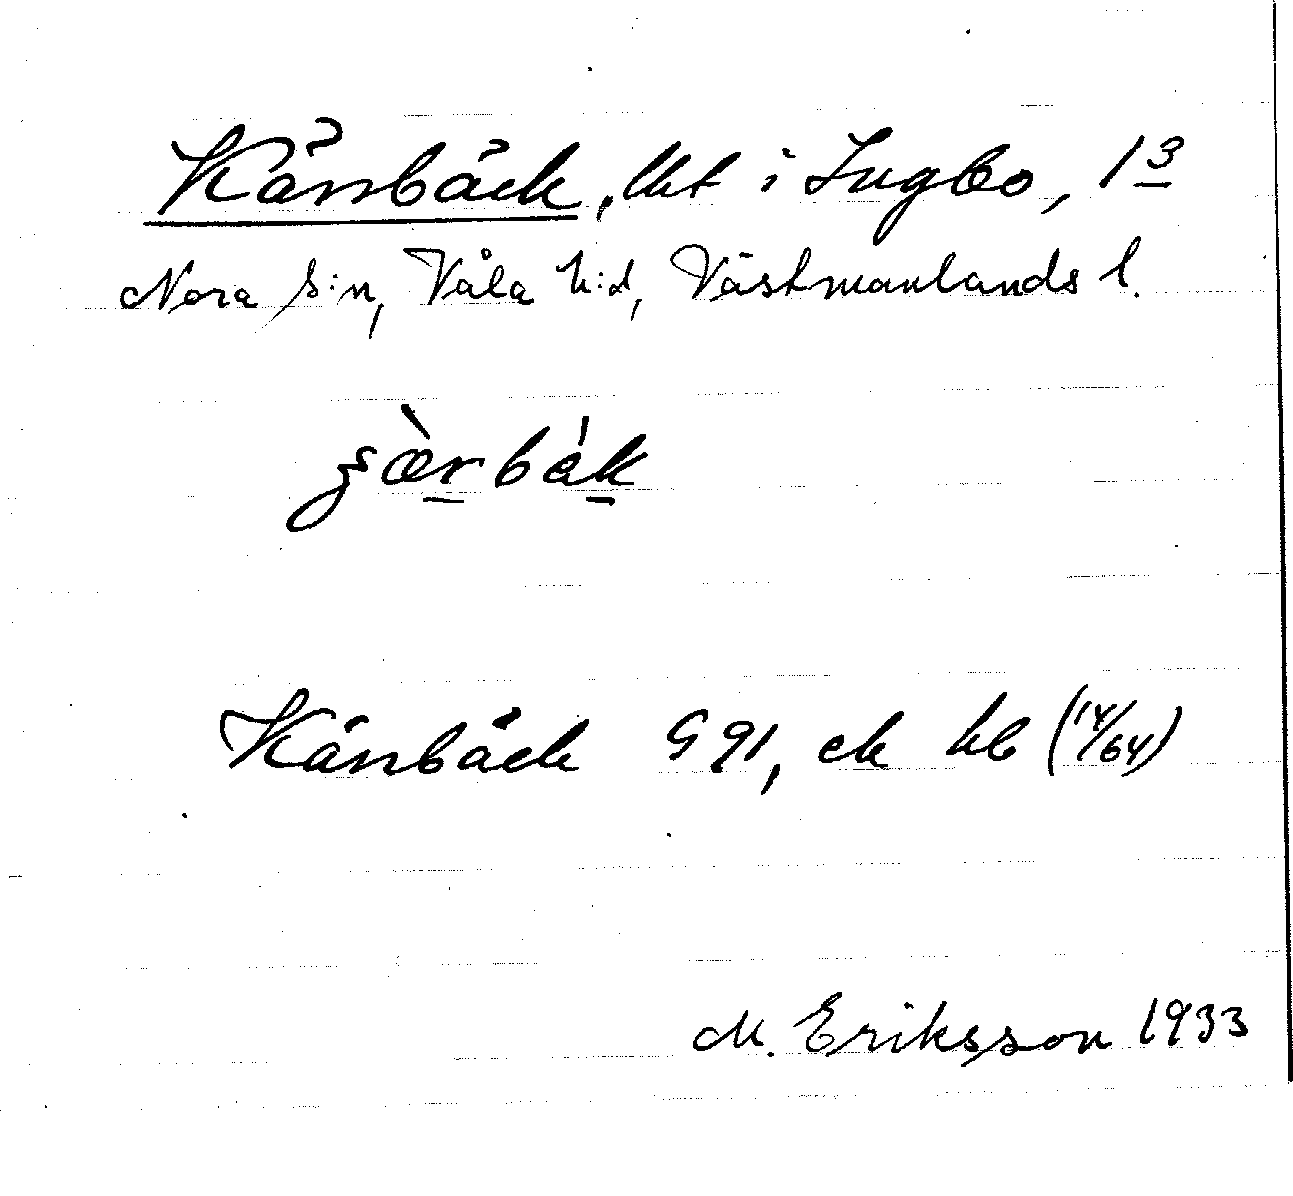 Kärrbäck, lht i Ingbo, 1 3
Nora s:n, Våla h:d, Västmanlands l.
Kärrbäck G 91, ek kb (14/64)
M. Eriksson 1933